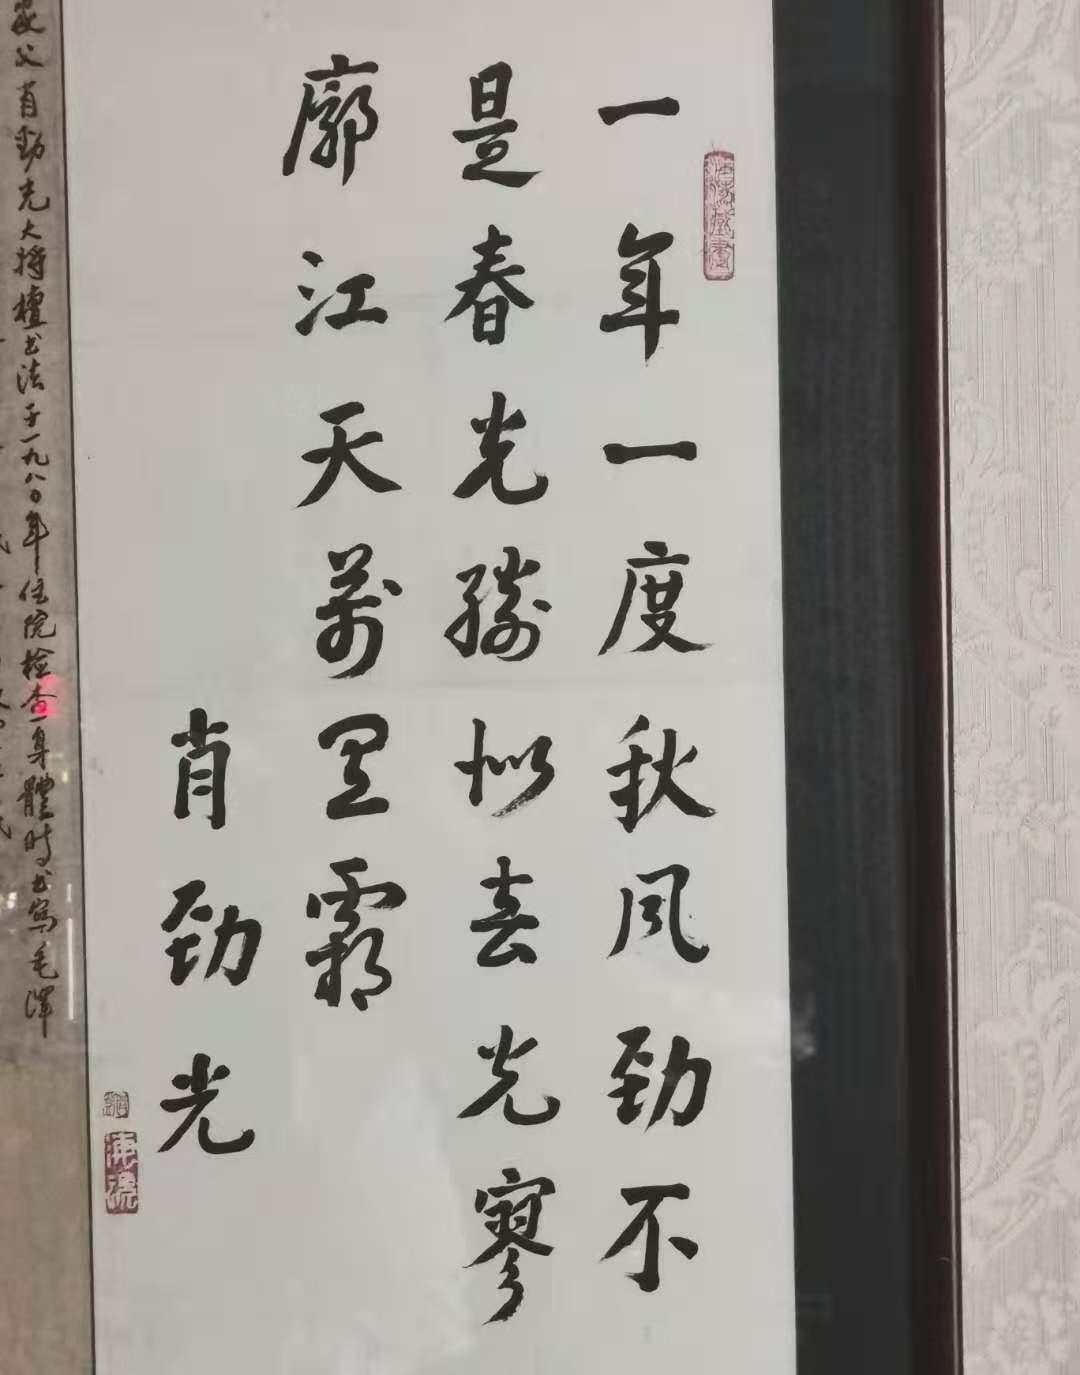 一年一度秋风劲不
是春光勝似去光寥
廓江天萬里霜
肖劲光
家父肖劲光大将擅书法于一九八〇年住院检查身體时书写毛澤